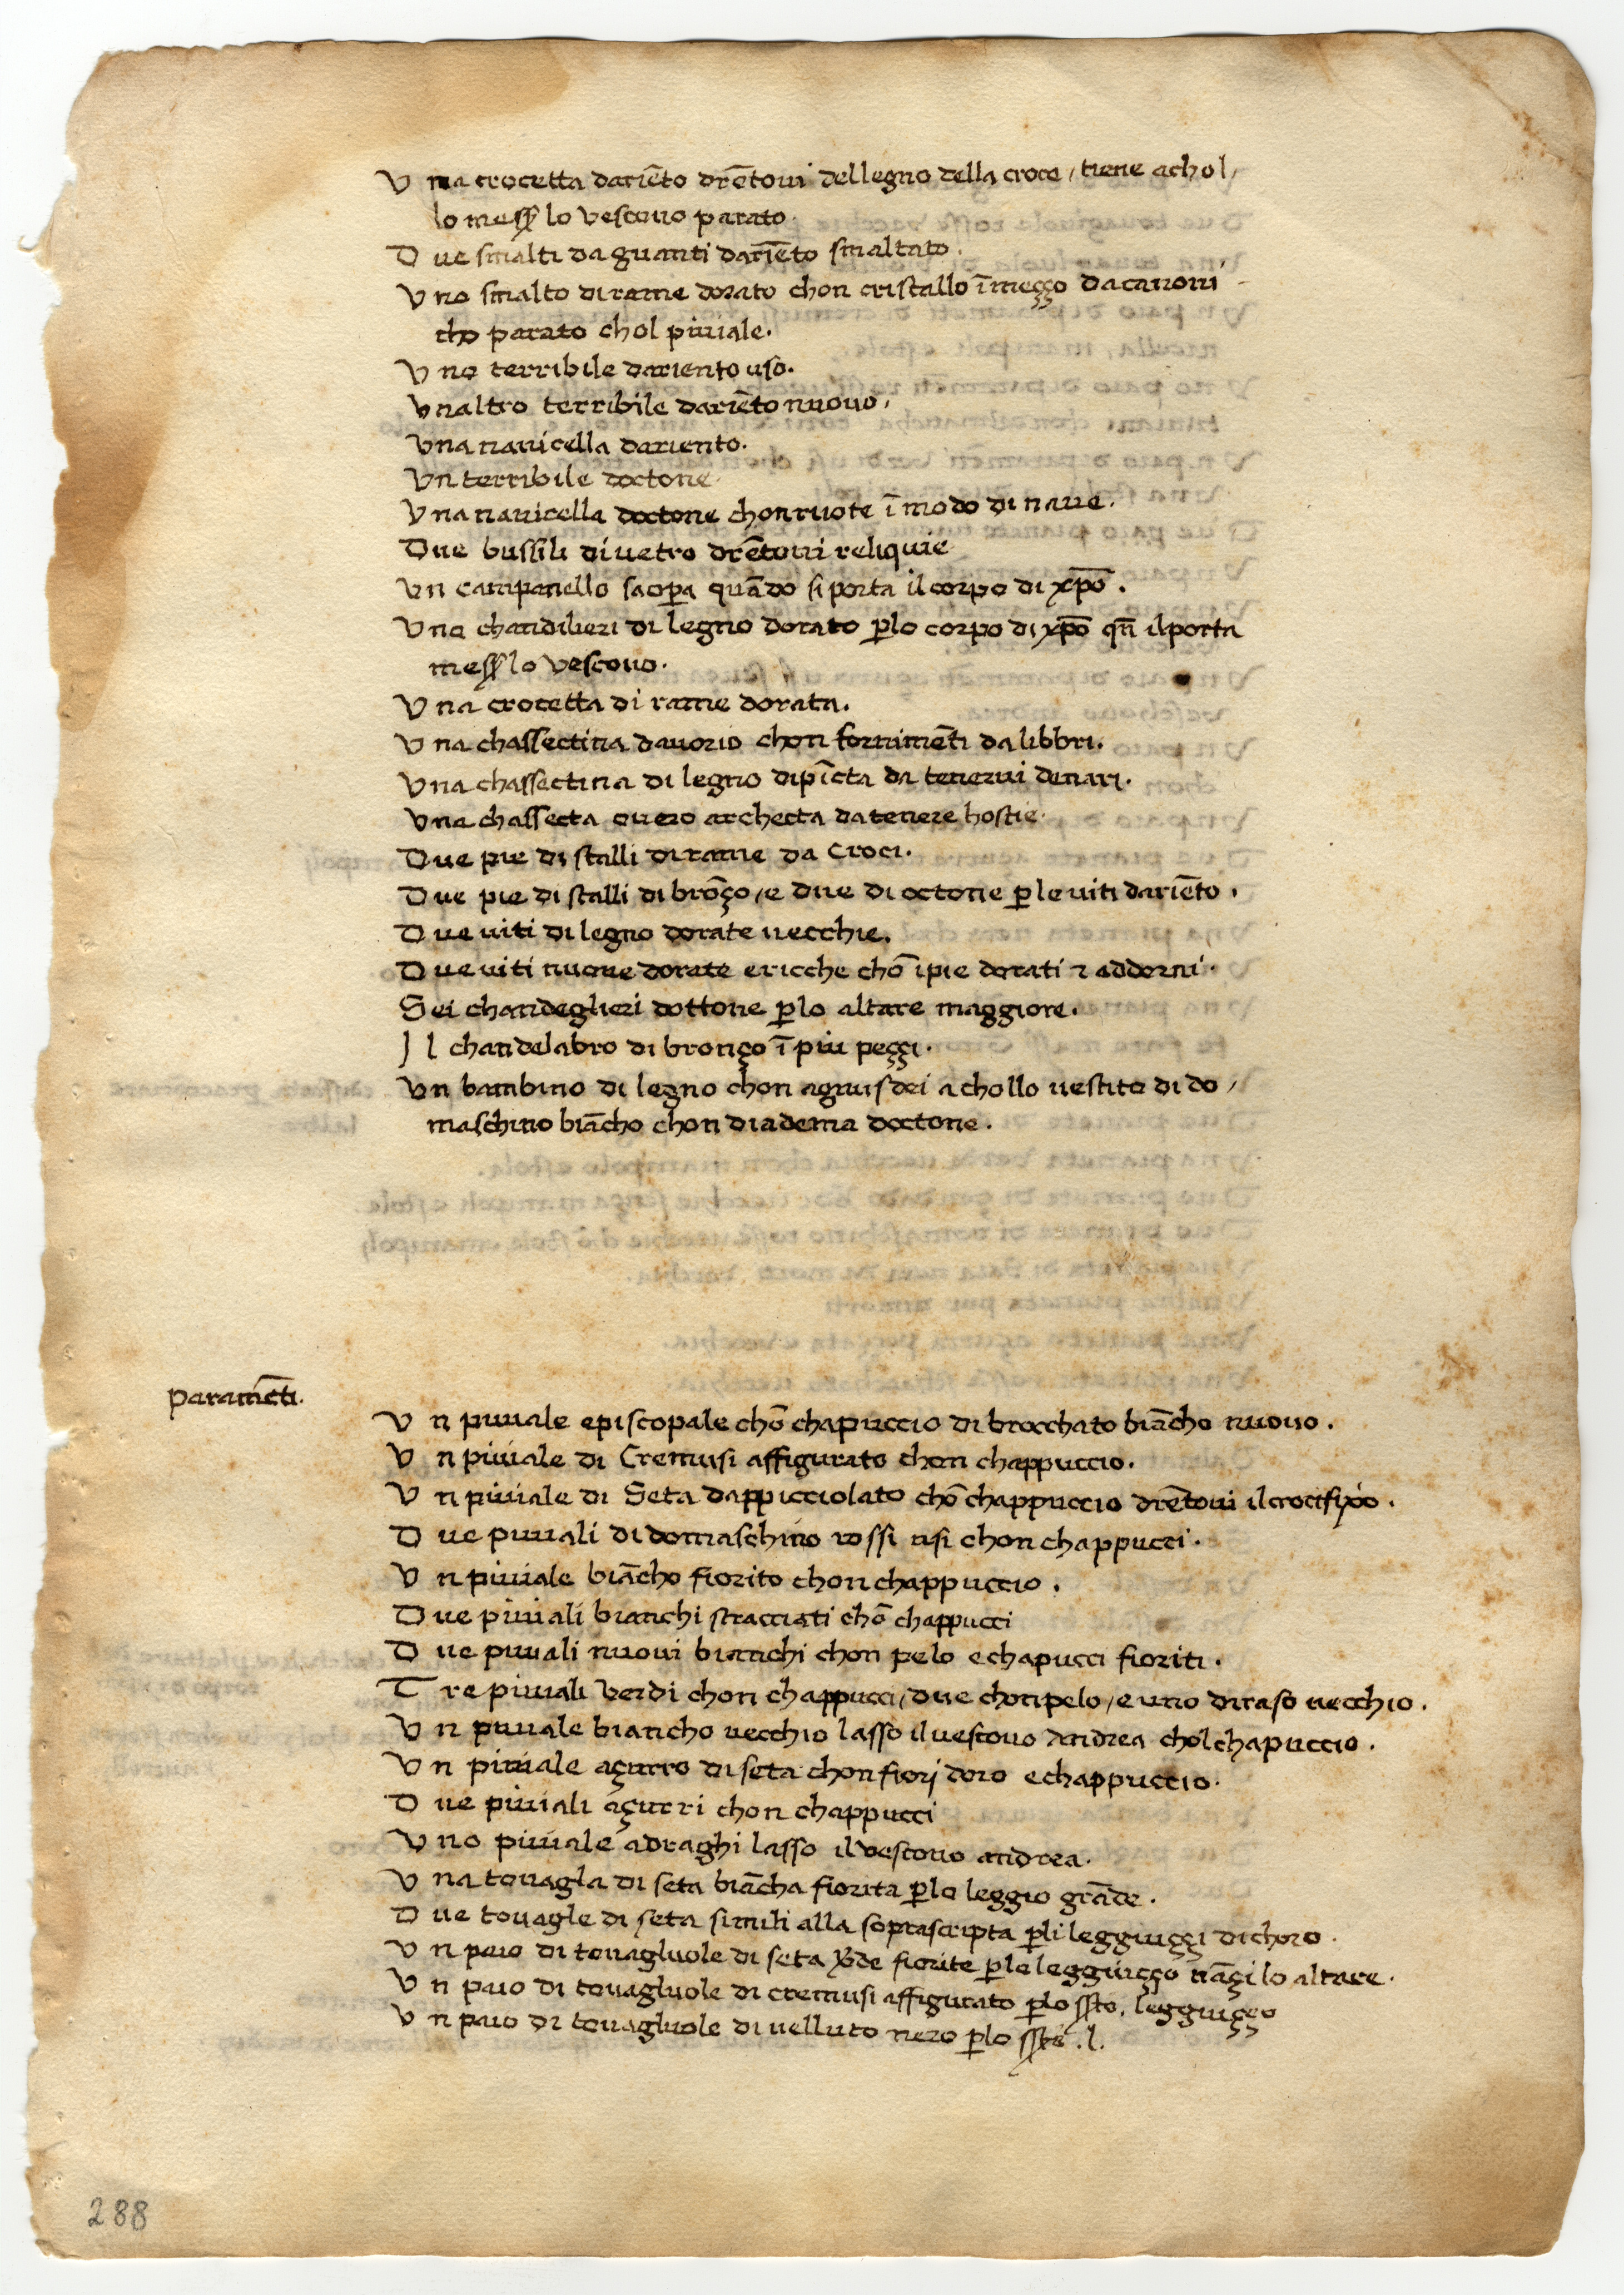 Una crocetta dariēto drētoui dellegno della croce / tiene achol/
lo mess̄ lo vescouo parato.
Due smalti da guanti dariēto smaltato.
Uno smalto di rame dorato chon cristallo ī meçço da canoni
cho parato chol piuiale.
Uno terribile dariento uso.
Unaltro terribile dariēto nuouo.
Una nauicella dariento.
Un terribile doctone.
Una nauicella doctone chon ruote ī modo di naue.
Due bussili di uetro drētoui reliquie
Un campanello saop̄a quādo si porta il corpo di xp̄o.
Uno chandilieri di legno dorato p̄lo corpo di xp̄o qn̄ il porta
mess̄ lo vescouo.
Una crocetta di rame dorata.
Una chassectina dauorio chon fornimēti da libbri.
Una chassectina di legno dipīcta da tenerui denari.
Una chassecta ouero archecta da tenere hostie.
Due pie di stalli di rame da Croci.
Due pie di stalli di brōço / e due di octone p̄le uiti dariēto.
Due uiti di legno dorate uecchie.
Due uiti nuoue dorate e ricche chō i pie dorati ⁊ addorni.
Sei chandeglieri dottone p̄lo altare maggiore.
Il chandelabro di bronço ī piu peççi.
Un bambino di legno chon agnusdei a chollo uestito di do/
maschino biācho chon diadema doctone.
paramēti.
Un piuiale episcopale chō chapuccio di brocchato biācho nuouo.
Un piuiale di Cremusi affigurato chon chappuccio.
Un piuiale di Seta dappicciolato chō chappuccio drētoui il crocifixo.
Due piuiali di domaschino rossi usi chon chappucci.
Un piuiale biācho fiorito chon chappuccio.
Due piuiali bianchi stracciati chō chappucci
Due piuiali nuoui bianchi chon pelo e chapucci fioriti.
Tre piuiali Verdi chon chappucci / due chon pelo / e uno di raso uecchio.
Un piuiale biancho uecchio lasso il uescouo Andrea chol chapuccio.
Un piuiale açurro di seta chon fiori doro e chappuccio.
Due piuiali açurri chon chappucci
Uno piuiale a draghi lasso il Vescouo andrea.
Una touagla di seta biācha fiorita p̄lo leggio grāde.
Due touagle di seta simili alla soprascripta p̄li leggiuççi di choro.
Un paio di touagluole di seta v̄de fiorite p̄lo leggiuçço nāçi lo altare.
Un paio di touagluole di cremusi affigurato p̄lo ss̄to. leggiuçço
Un paio di touagluole di uelluto nero p̄lo ss̄to .l.
288